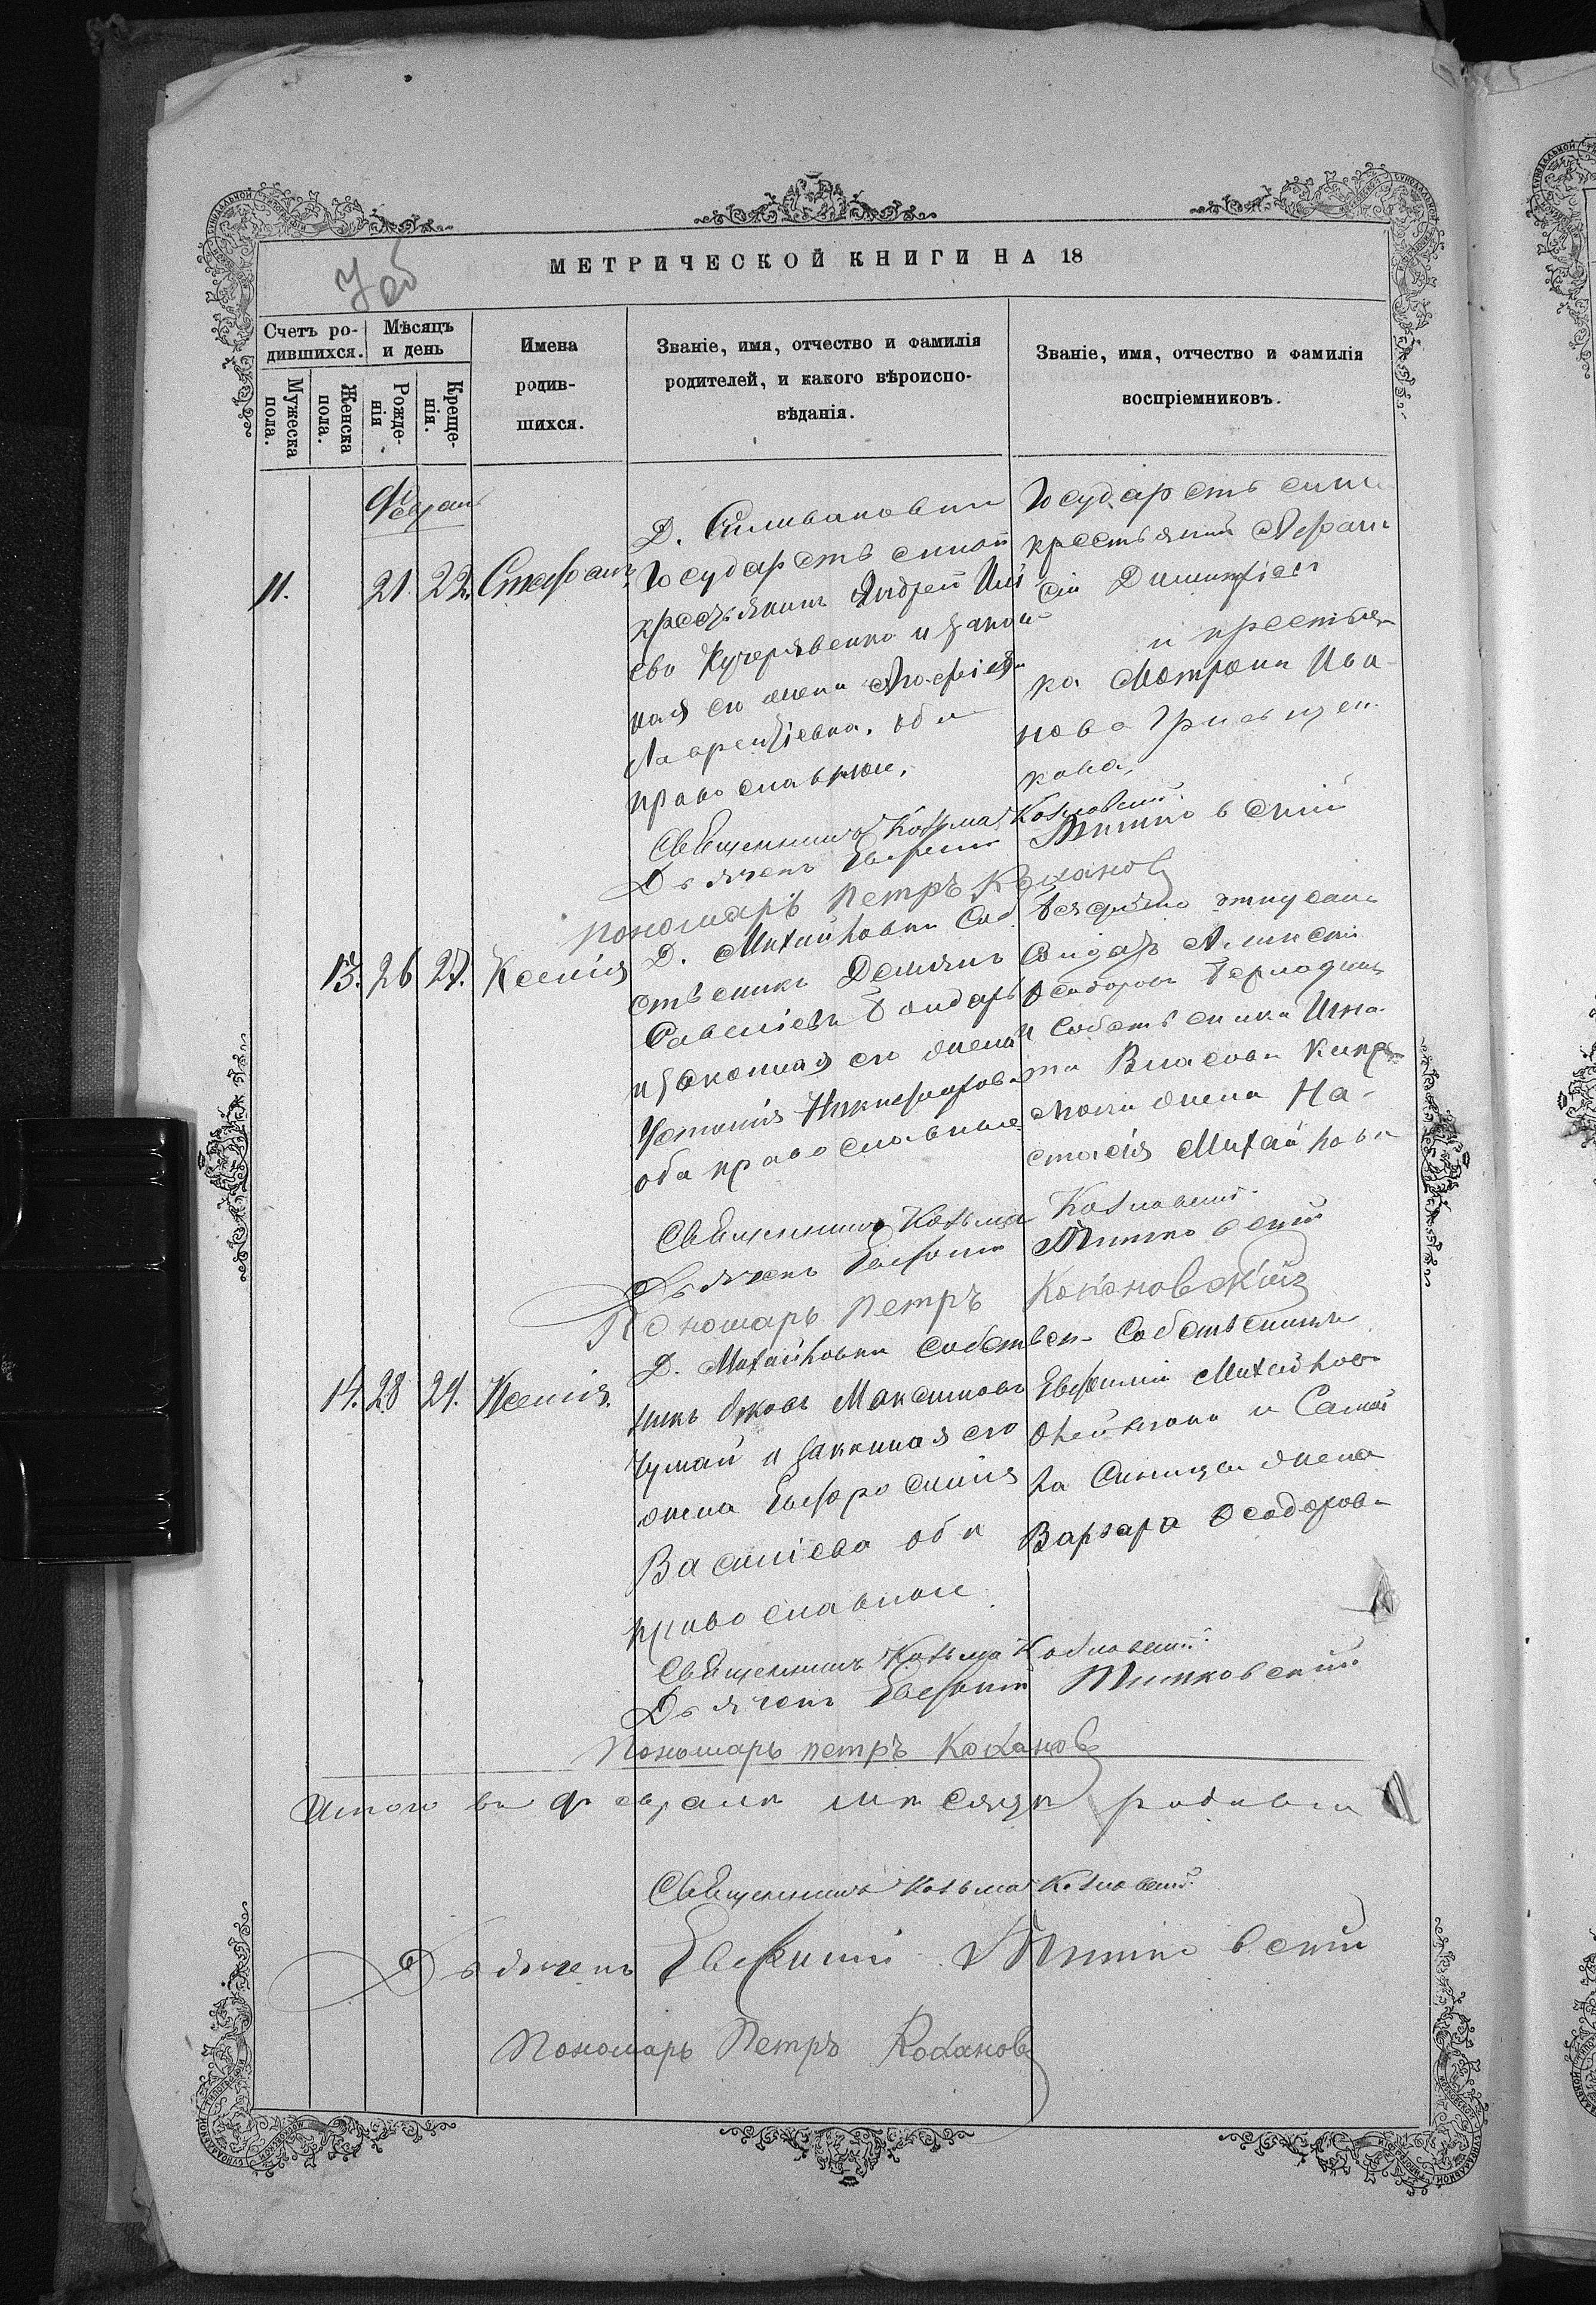 МЕТРИЧЕСКОЙ КНИГИ НА 18
Счетъ ро-
дившихся.
Мужеска
пола.
Женска
пола.
Мѣсяцъ
и день
Рожде-
нія
Креще-
нія.
Имена
родив-
шихся.
Званіе, имя, отчество и фамилія
родителей, и какого вѣроиспо-
вѣданія.
Званіе, имя, отчество и фамилія
воспріемниковъ.
11. 21. 22. Стефанъ
Д. Селивановки
Государственной
крестьянинъ Андрей
Кучерявенко и закон-
ная его жена
Лаврентіевна, оба
православные.
Государствении
крестьянинъ Афана-
сій Димитріевъ
и крестьян
ка Матрона Ива-
нова
кова.
Священникъ Козьма Козловскій.
Дьячекъ Евфимій
Пономарь Петръ Кохановъ
13. 26 27. Ксенія
Д. Михайловки Соб
ственникъ Демьянъ
Савеліевъ Бондарь
и законная его жена
Устинія Никифорова
оба православные
Безсрочно отпускн.
Солдатъ Алексій
Феодоровъ
и Собственника Игна-
та Власова
жена На-
стасія Михайлова
Священникъ Козьма Козловскій.
Дьячекъ Евфимій
Пономарь Петръ Кохановскій
14. 28 29. Ксенія.
Д. Михайловки Собствен-
никъ Яковъ Максимовъ
Чумай и законная его
жена Евфросинія
Василіева оба
православные
Собственникъ
Евфимій Михайловъ
и Самой
ла Синицы жена
Варвара Феодорова
Священникъ Козьма Козловскій.
Дьячекъ Евфимій
Пономарь Петръ Кохановъ
Итого въ февралѣ мѣсяцѣ
Священникъ Козьма Козловскій.
Дьячекъ Евфимій
Пономарь Петръ Кохановъ